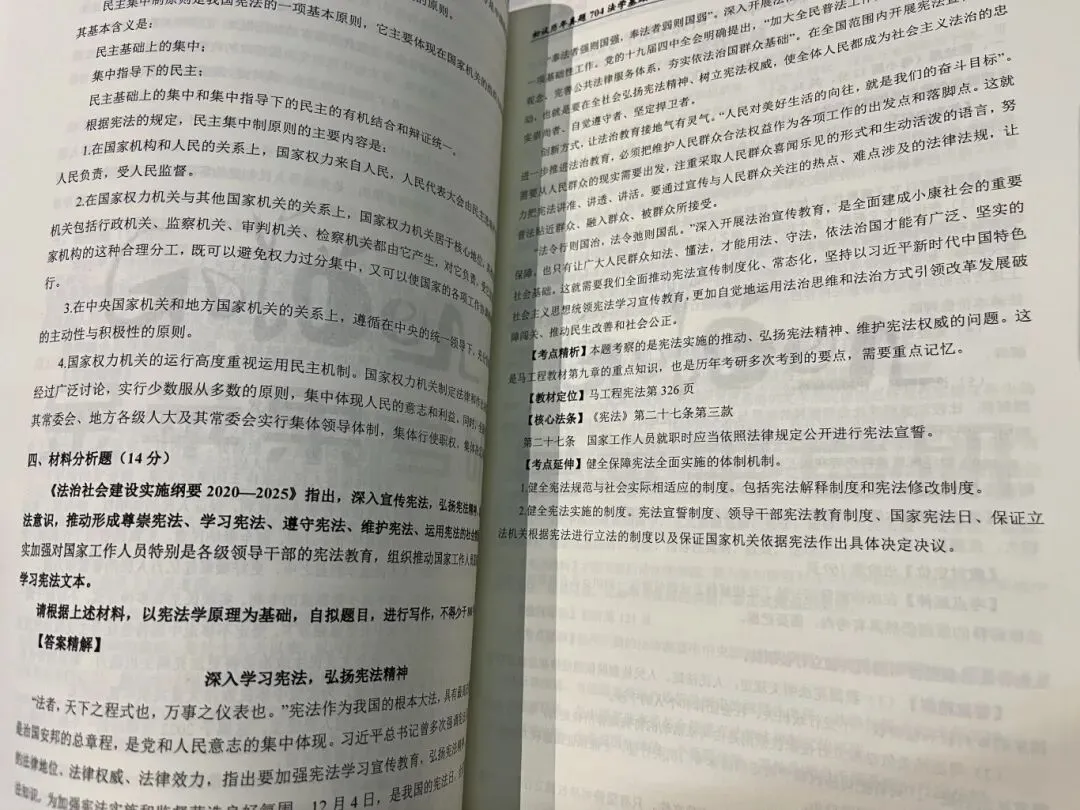 民主集中制原则是我国宪法的一项基本原则，它主要体现在国家机关的
其基本含义是：
民主基础上的集中；
集中指导下的民主；
民主基础上的集中和集中指导下的民主的有机结合和辩证统一。
根据宪法的规定，民主集中制原则的主要内容是：
1.在国家机构和人民的关系上，国家权力来自人民，人民代表大会由民主选举
人民负责，受人民监督。
2.在国家权力机关与其他国家机关的关系上，国家权力机关居于核心地位，
机关包括行政机关、监察机关、审判机关、检察机关都由它产生，对它负责，受
家机构的这种合理分工，既可以避免权力过分集中，又可以使国家的各项工作
行。
3.在中央国家机关和地方国家机关的关系上，遵循在中央的统一领导下，充
的主动性与积极性的原则。
4.国家权力机关的运行高度重视运用民主机制。国家权力机关制定法律和
经过广泛讨论，实行少数服从多数的原则，集中体现人民的意志和利益，同时，
其常委会、地方各级人大及其常委会实行集体领导体制，集体行使职权，集体
四、材料分析题（14 分）
《法治社会建设实施纲要 2020—2025》指出，深入宣传宪法，弘扬宪法精神，
法意识，推动形成尊崇宪法、学习宪法、遵守宪法、维护宪法、运用宪法的社会
实加强对国家工作人员特别是各级领导干部的宪法教育，组织推动国家工作人员
学习宪法文本。
请根据上述材料，以宪法学原理为基础，自拟题目，进行写作，不得少于
【答案精解】
深入学习宪法，弘扬宪法精神
“法者，天下之程式也，万事之仪表也。”宪法作为我国的根本大法，具有最高
是治国安邦的总章程，是党和人民意志的集中体现。习近平总书记曾多次强调
的法律地位、法律权威、法律效力，指出要加强宪法学习宣传教育，弘扬宪法精神
法知识，为加强宪法实施和监督营造良好氛围。12 月 4 日，是我国的宪法日，
初试历年真题 704 法学基
“奉法者强则国强，奉法者弱则国弱”。深入开展法
一项基础性工作。党的十九届四中全会明确提出，“加大全民普法工作
观念，完善公共法律服务体系，夯实依法治国群众基础”。在全国范围内开展宪法宣
动，也就是要在全社会弘扬宪法精神、树立宪法权威，使全体人民都成为社会主义法治的忠
实崇尚者、自觉遵守者、坚定捍卫者。
创新方式，让法治教育接地气有灵气。“人民对美好生活的向往，就是我们的奋斗目标”。
进一步推进法治教育，必须把维护人民群众合法权益作为各项工作的出发点和落脚点。这就
需要从人民群众的现实需要出发，注重采取人民群众喜闻乐见的形式和生动活泼的语言，努
力把宪法讲准、讲透、讲活。要通过宣传与人民群众关注的热点、难点涉及的法律法规，让
普法贴近群众、融入群众、被群众所接受。
“法令行则国治，法令弛则国乱。”深入开展法治宣传教育，是全面建成小康社会的重要
保障。也只有让广大人民群众知法、懂法，才能用法、守法，依法治国才能有广泛、坚实的
社会基础。这就需要我们全面推动宪法宣传制度化、常态化，坚持以习近平新时代中国特色
社会主义思想统领宪法学习宣传教育，更加自觉地运用法治思维和法治方式引领改革发展破
障闯关、推动民生改善和社会公正。
【考点精析】本题考察的是宪法实施的推动、弘扬宪法精神、维护宪法权威的问题。这
是马工程教材第九章的重点知识，也是历年考研多次考到的要点，需要重点记忆。
【教材定位】马工程宪法第 326 页
【核心法条】《宪法》第二十七条第三款
第二十七条 国家工作人员就职时应当依照法律规定公开进行宪法宣誓。
【考点延伸】健全保障宪法全面实施的体制机制。
1.健全宪法规范与社会实际相适应的制度。包括宪法解释制度和宪法修改制度。
2.健全宪法实施的制度。宪法宣誓制度、领导干部宪法教育制度、国家宪法日、保证立
法机关根据宪法进行立法的制度以及保证国家机关依据宪法作出具体决定决议。